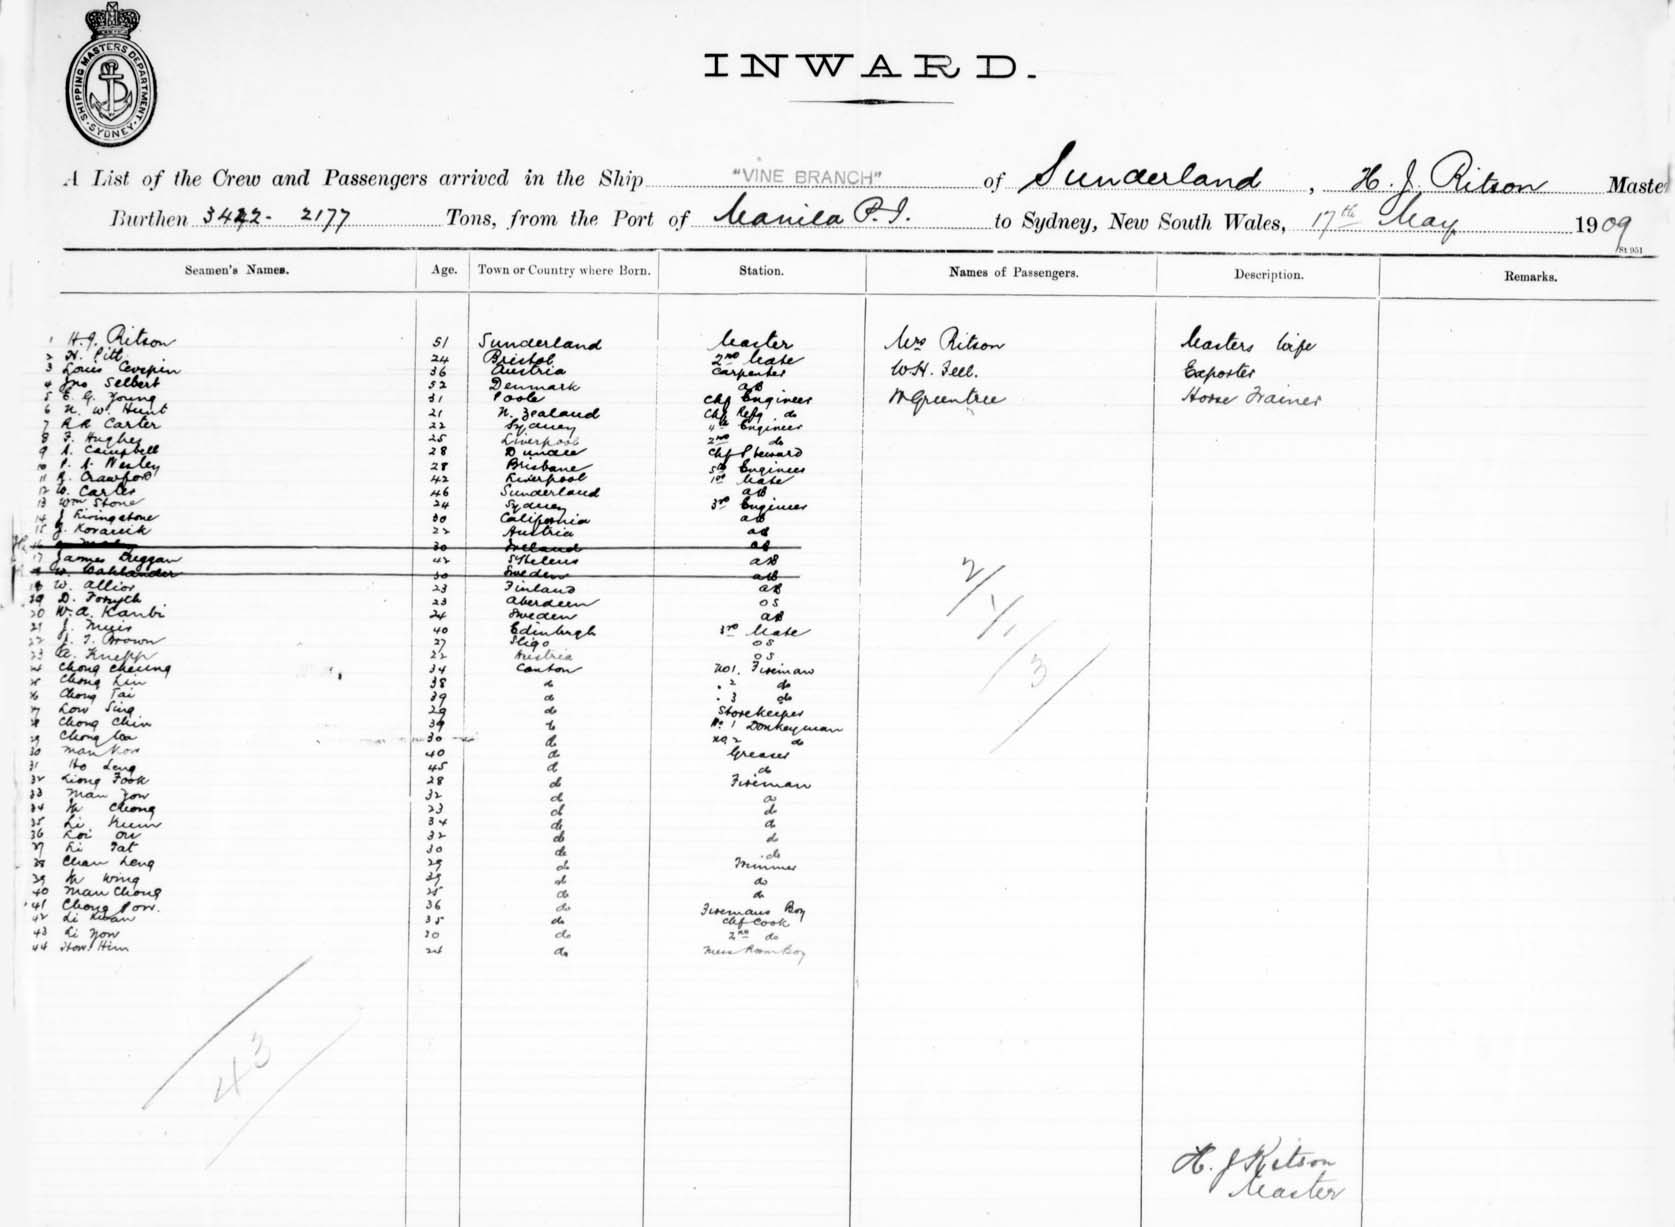 SHIPPING MASTERS DEPARTMENT
SYDNEY
INWARD.
A List of the Crew and Passengers arrived in the Ship "VINE BRANCH" of Sunderland, H. J. Ritson Maste
Burthen 3442 - 2177 Tons, from the Port of Manila P.I. to Sydney, New South Wales, 17th May 1909
St 951
Seamen's Names. Age. Town or Country where Born. Station. Names of Passengers. Description. Remarks.
1 H. J. Ritson 51 Sunderland Master Mrs Ritson Masters Wife
2 H. Pitt 24 Bristol 2nd Mate
3 Louis 36 Austria Carpenter W H. Fell. Exporter
4 Jno Selbert 52 Denmark AB
5 E. G. Young 31 Poole Chf Engineer W Greentree Horse Trainer
6 H. W. Hunt 21 N. Zealand Chf Refg. do
7 R R Carter 22 Sydney 4th Engineer
8 F. Hughes 25 Liverpool 2nd do
9 A. Campbell 28 Dundee Chf Steward
10 P. A. Wesley 28 Brisbane 5th Engineer
11 R. Crawford 42 Liverpool 1st Mate
12 W. Carter 46 Sunderland AB
13 Wm Stone 24 Sydney 3rd Engineer
14 J Livingstone 30 California AB
15 J. Koranik 22 Austria AB
16 30 Ireland AB
17 James Duggan 42 St Helens AB
W. Oahlander 30 Sweden AB
18 W. Allior 23 Finland AB
19 D. Forsyth 23 Aberdeen OS
20 W. A. Kanbi 24 Sweden AB
21 J. Muir 40 Edinburgh 3rd Mate
22 J. T. Brown 27 Sligo OS
23 A. Knepp 22 Austria OS
24 Chong Cheung 34 Canton No 1. Fireman
25 Chong Lin 38 do . 2 do
26 Chong Tai 39 do . 3 do
27 Low Sing 29 do Storekeeper
28 Chong Chin 39 do No 1 Donkeyman
29 Chong 30 do No 2 do
30 Man Kow 40 do Greaser
31 Ho Leng 45 do do
32 Liong Fook 28 do Fireman
33 Man Yow 32 do do
34 Cheong 23 do do
35 Li Kum 34 do do
36 Loi On 32 do do
37 Li Tat 30 do do
38 Chan Leng 29 do Trimmer
39 Wing 39 do do
40 Man Chong 25 do do
41 Chong Pow. 36 do Firemans Boy
42 Li Kwan 35 do Chf Cook
43 Li Yow 30 do 2nd do
44 How Him 24 do Mess Room Boy
2/1/3
43
H. J Ritson
Master